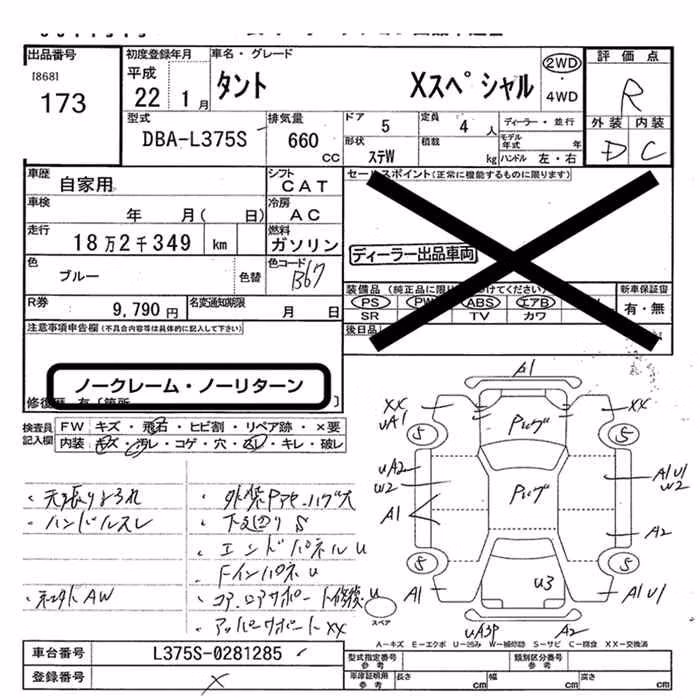 出品番号
[868]
173
初度登録年月
平成
22 1月
車名・グレード
タント Xスペシャル
2WD
・
4WD
評価点
R
外装 内装
D C
型式
DBA-L375S
排気量
660
CC
ドア 5
定員 4 人
形状 ステW
積載 kg
ディーラー・並行
モデル年式 年
ハンドル 左・右
車歴
自家用
シフト
CAT
車検
年 月( 日)
冷房
AC
走行
18万2千349 km
燃料
ガソリン
色
ブルー
色替
色コード
B67
R券
9,790円
名変通知期限
月 日
セールスポイント(正常に機能するものに限ります)
ディーラー出品車両
装備品(純正品に限り
けてください)
新車保証書
PS PW ABS エアB
有・無
SR TV カワ
後日品
注意事項申告欄(不具合内容等は具体的に記入して下さい)
ノークレーム・ノーリターン
修復歴 有〔箇所 〕
検査員
記入欄
FW キズ・飛石・ヒビ割・リペア跡・×要
内装 キズ・汚レ・コゲ・穴・スレ・キレ・破レ
・天張りよごれ
・ハンドルスレ
・社外AW
・下廻りS
・エンドパネルU
・FインパネU
・コア.ロアサポート修復U
・アッパーサポートXX
A1
XX
UA1
5
Pハゲ
XX
5
UA2
W2
A1
Pハゲ
A1U1
W2
A2
5
A1
U3
5
A1U1
UA3P
A2
スペア
A-キズ E-エクボ U-凹み W-補修跡 S-サビ C-腐食 XX-交換済
車台番号
L375S-0281285
登録番号
X
型式指定番号
参考
類別区分番号
参考
車庫証明用
参考
長さ cm
幅 cm
高さ cm